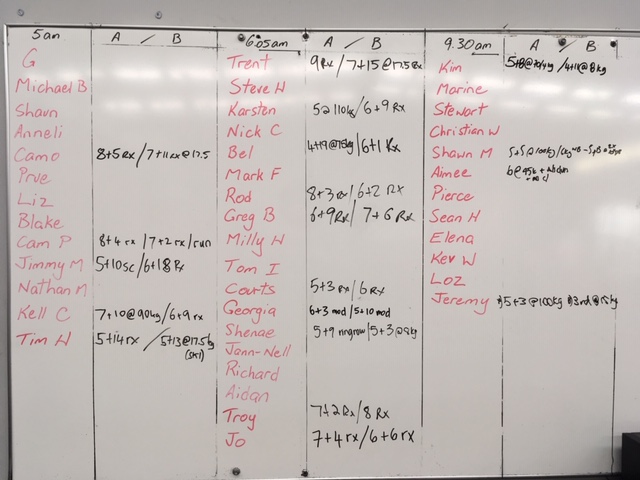 5am A / B
G
Michael B
Shaun
Anneli
Camo 8+5 Rx / 7+11 Rx @ 17.5
Prue
Liz
Blake
Cam P 8+4 rx / 7+2 rx / run
Jimmy M 5+10 sc / 6+18 Rx
Nathan M
Kell C 7+10 @ 90kg / 6+9 rx
Tim H 5+14 rx / 5+13 @ 17.5kg
6:05am A / B
Trent 9 Rx / 7+15 @ 17.5 Rx
Steve H
Karsten 5 @ 110kg / 6+9 Rx
Nick C
Bel 4+19 @ 75kg / 6+1 Rx
Mark F
Rod 8+3 rx / 6+2 Rx
Greg B 6+9 Rx / 7+6 Rx
Milly H
Tom I
Courts 5+3 Rx / 6 Rx
Georgia 6+3 mod / 5+10 mod
Shenae 5+9 / 5+3 @
Jann-Nell
Richard
Aidan
Troy 7+2 Rx / 8 Rx
Jo 7+4 rx / 6+6 rx
9.30am A / B
Kim / 4+11 @ 8kg
Marine
Stewart
Christian W
Shawn M 5+5 @ 100kg /
Aimee 6 @
Pierce
Sean H
Elena
Kev W
Loz
Jeremy 5+3 @ 100kg